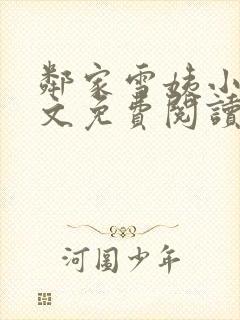 鄰家雪姨小
文免費閱讀
河圖少年